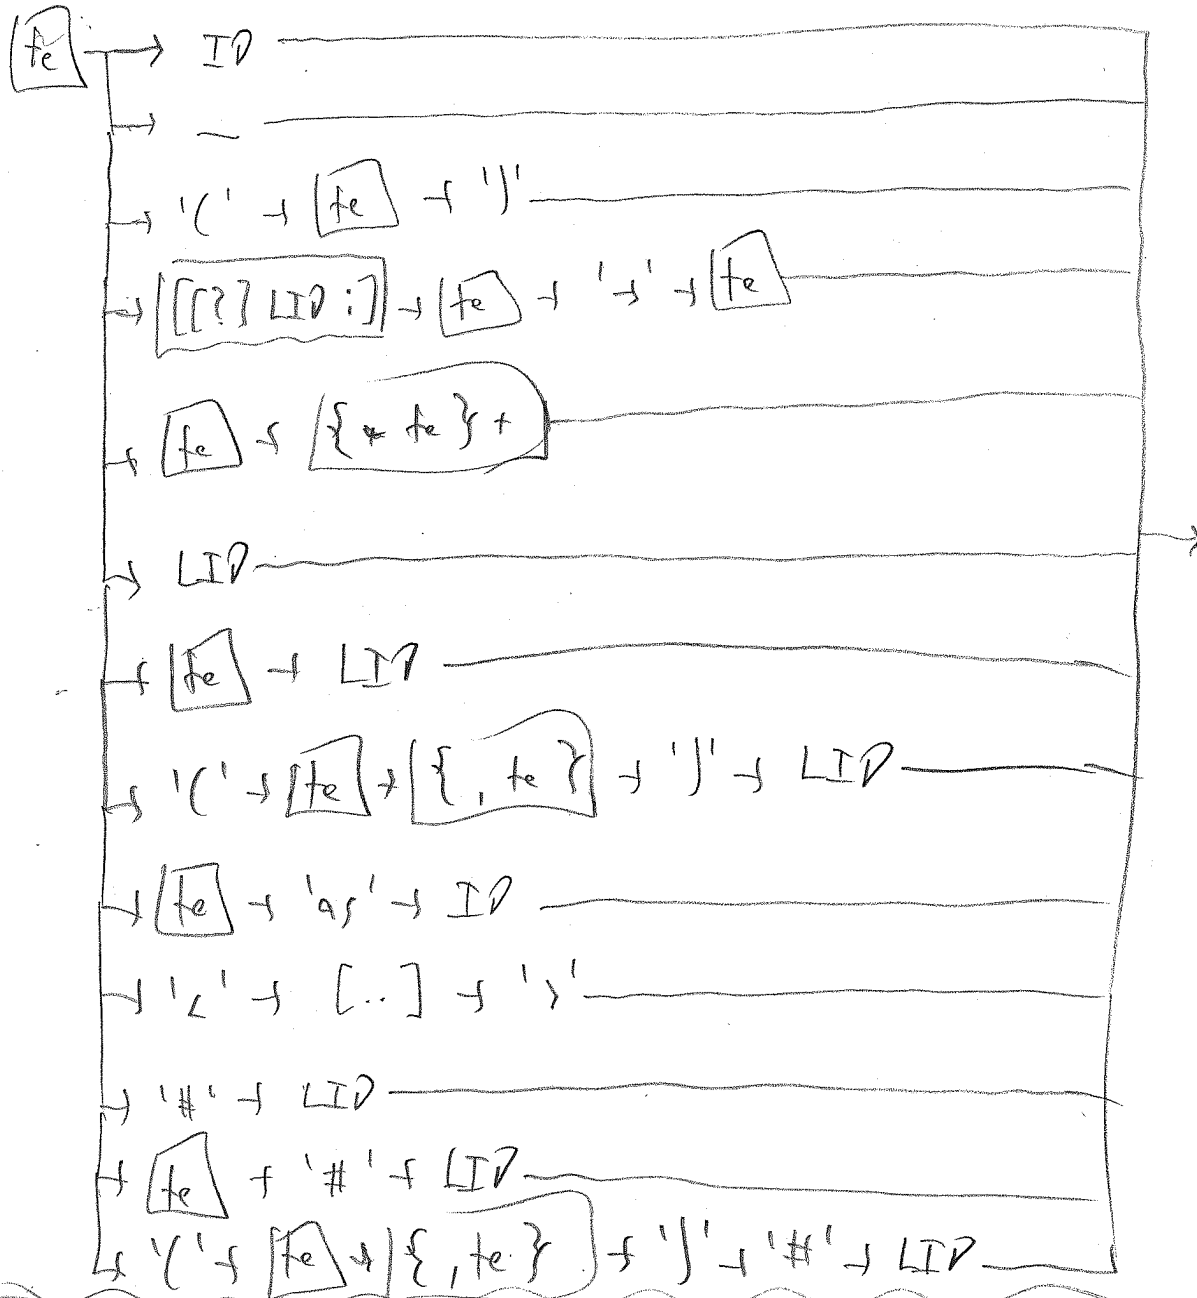 te → ID
→ _
→ '(' → te → ')'
→ [[?] LID :] → te → '→' → te
→ te → { * te } +
→ LID
→ te → LID
→ '(' → te → { , te } → ')' → LID
→ te → 'as' → ID
→ '<' → [..] → '>'
→ '#' → LID
→ te → '#' → LID
→ '(' → te → { , te } → ')' → '#' → LID